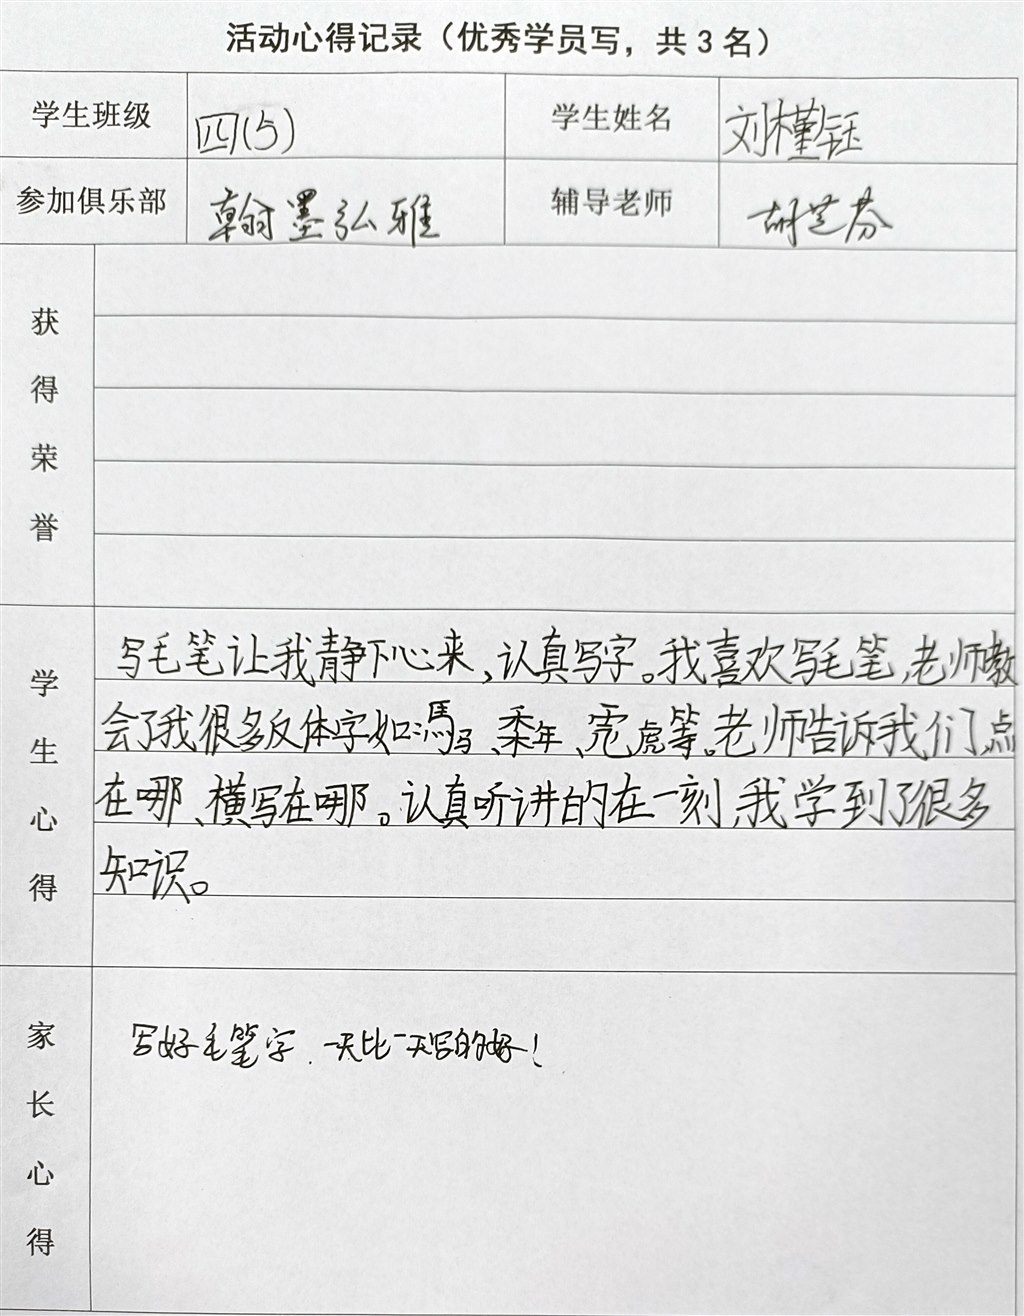 活动心得记录（优秀学员写，共3名）
学生班级 四(5) 学生姓名 刘槿钰
参加俱乐部 翰墨弘雅 辅导老师 胡芝芬
获得荣誉
学生心得
写毛笔让我静下心来、认真写字。我喜欢写毛笔，老师教
会了我很多反体字如:馮、年、虎等。老师告诉我们点
在哪、横写在哪。认真听讲的在一刻，我学到了很多
知识。
家长心得
写好毛笔字，一天比一天写的好！